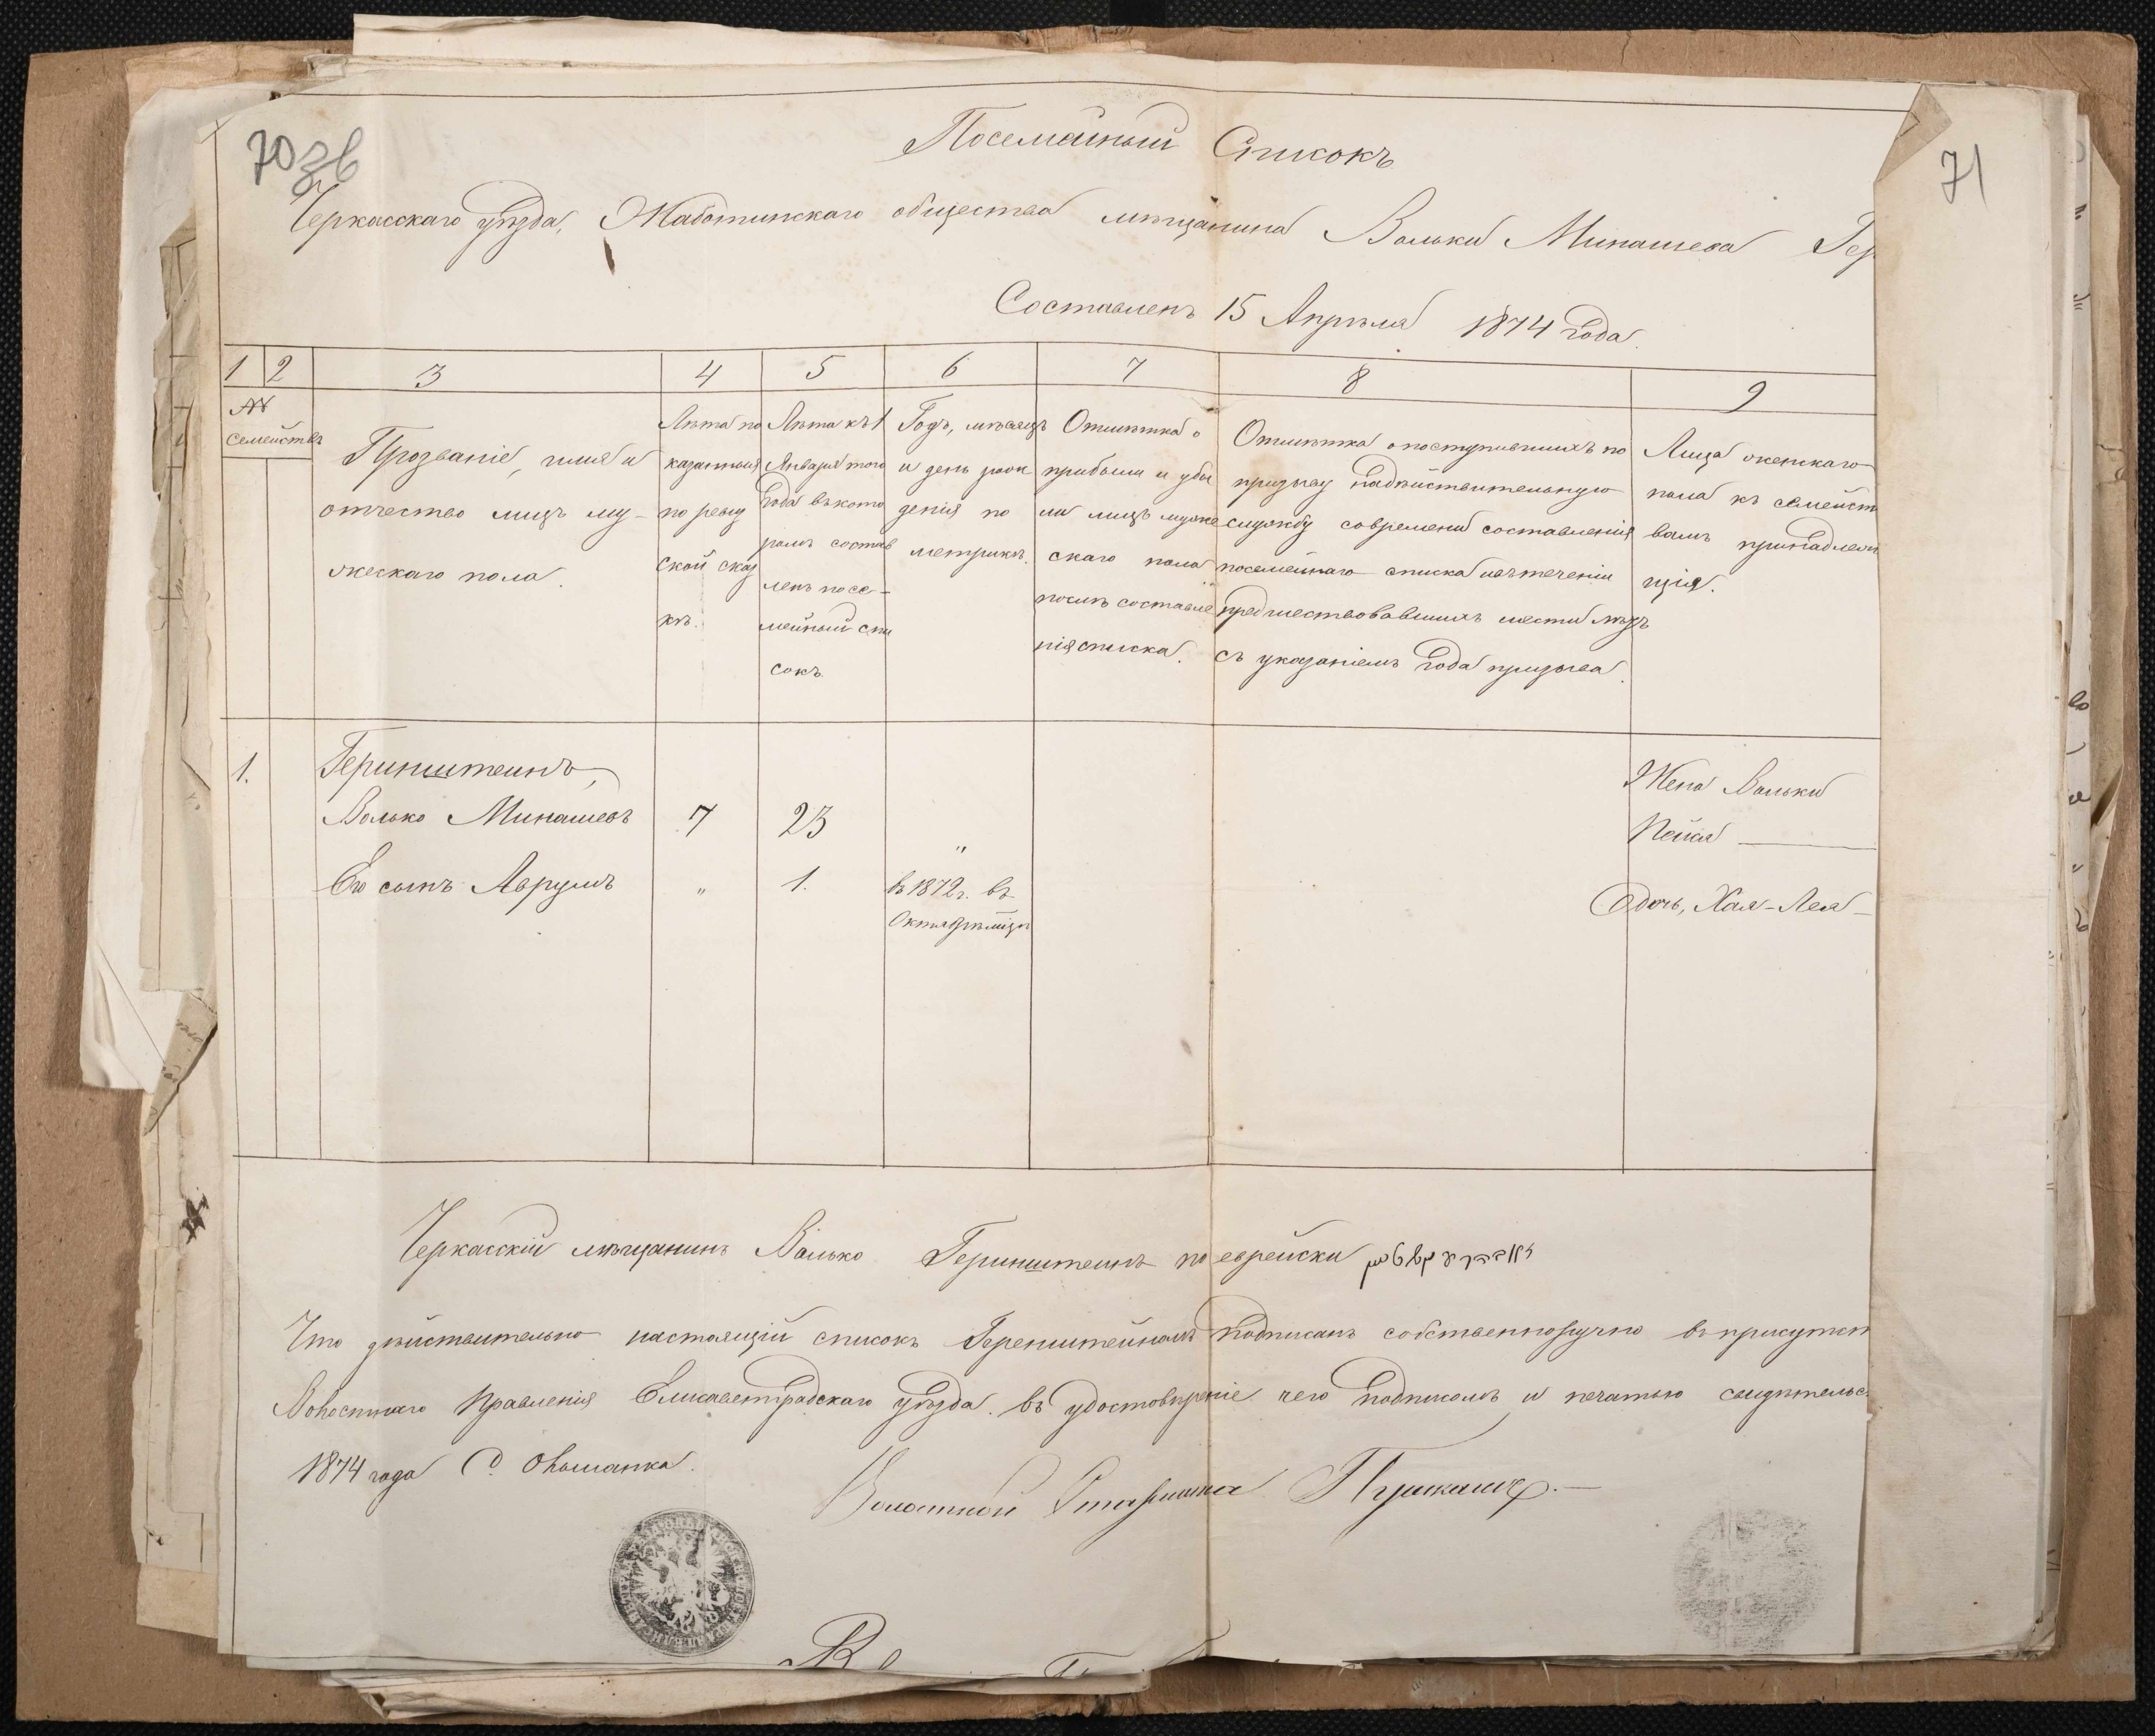 70 зв
71
Посемейный Списокъ
Черкасскаго уѣзда, Жаботинскаго общества мѣщанина Вольки Минашева Гер
Составленъ 15 Апрѣля 1874 года.
1 2 3 4 5 6 7 8 9
№
семействъ
Прозваніе, имя и
отчество лицъ му-
жескаго пола.
Лѣта по
казанныя
по ревиз
ской сказ
кѣ.
Лѣта къ 1
Января того
года въ кото
ромъ состав
ленъ посе-
мейный спи
сокъ
Годъ, мѣсяцъ
и день рож
денія по
метрикѣ.
Отмѣтка о
прибыли и убы
ли лицъ муже
скаго пола
послѣ составле
нія списка.
Отмѣтка о поступившихъ по
призыву на дѣйствительную
службу со времени составленія
посемейнаго списка и въ теченіи
предшествовавшихъ шести лѣтъ
съ указаніемъ года призыва.
Лица женскаго
пола къ семейст
вамъ принадлеж
щія.
1.
Геринштеинъ,
Волько Минашевъ 7 23 "
Его сынъ Аврумъ " 1. въ 1872 г. въ
Октябрѣ мцѣ
Жена Вольки
Пейся
Дочь, Хая-Лея-
Черкасскій мѣщанинъ Волько Геринштеинъ по еврейски
Что дѣйствительно настоящій списокъ Геренштейномъ подписанъ собственноручно въ присутст
Волостнаго Правленія Елисаветградскаго уѣзда. въ удостовѣреніе чего подписомъ и печатью свидѣтельс
1874 года С. Ольшанка.
Волостной Старшина